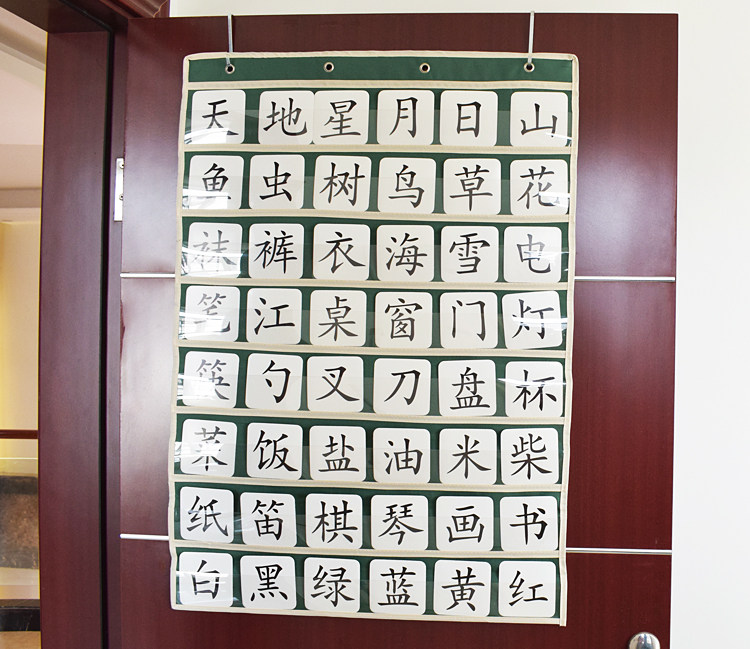 天 地 星 月 日 山
鱼 虫 树 鸟 草 花
袜 裤 衣 海 雪 电
笔 江 桌 窗 门 灯
筷 勺 叉 刀 盘 杯
菜 饭 盐 油 米 柴
纸 笛 棋 琴 画 书
白 黑 绿 蓝 黄 红